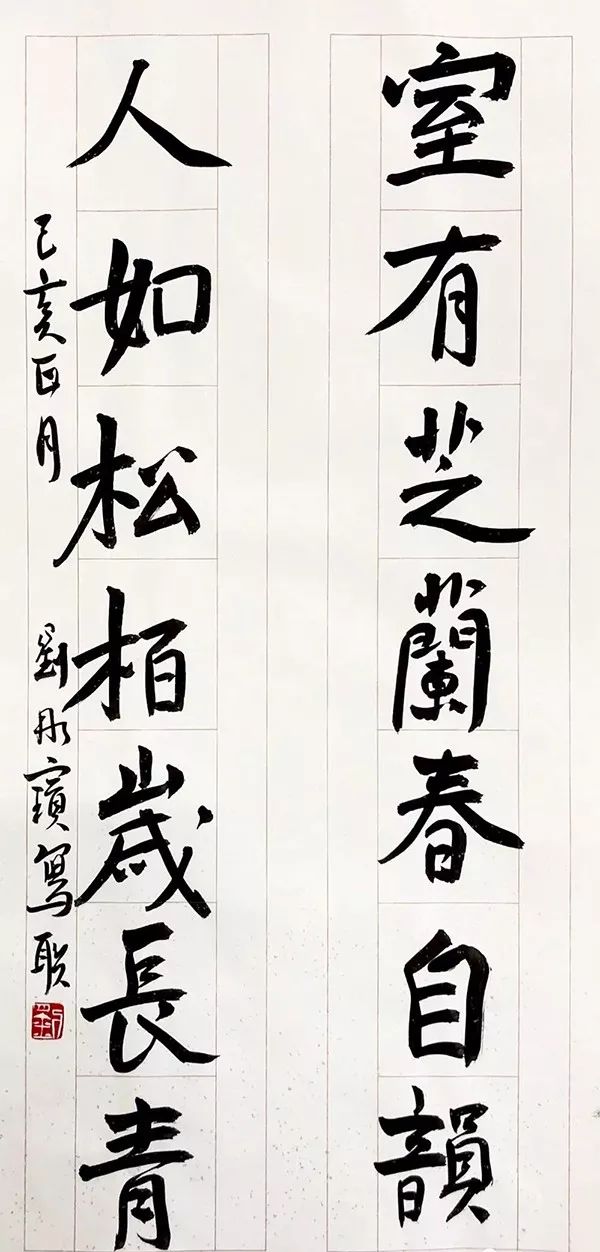 室有芝蘭春自韻
人如松柏歲長青
己亥正月 劉彤寶寫联
劉